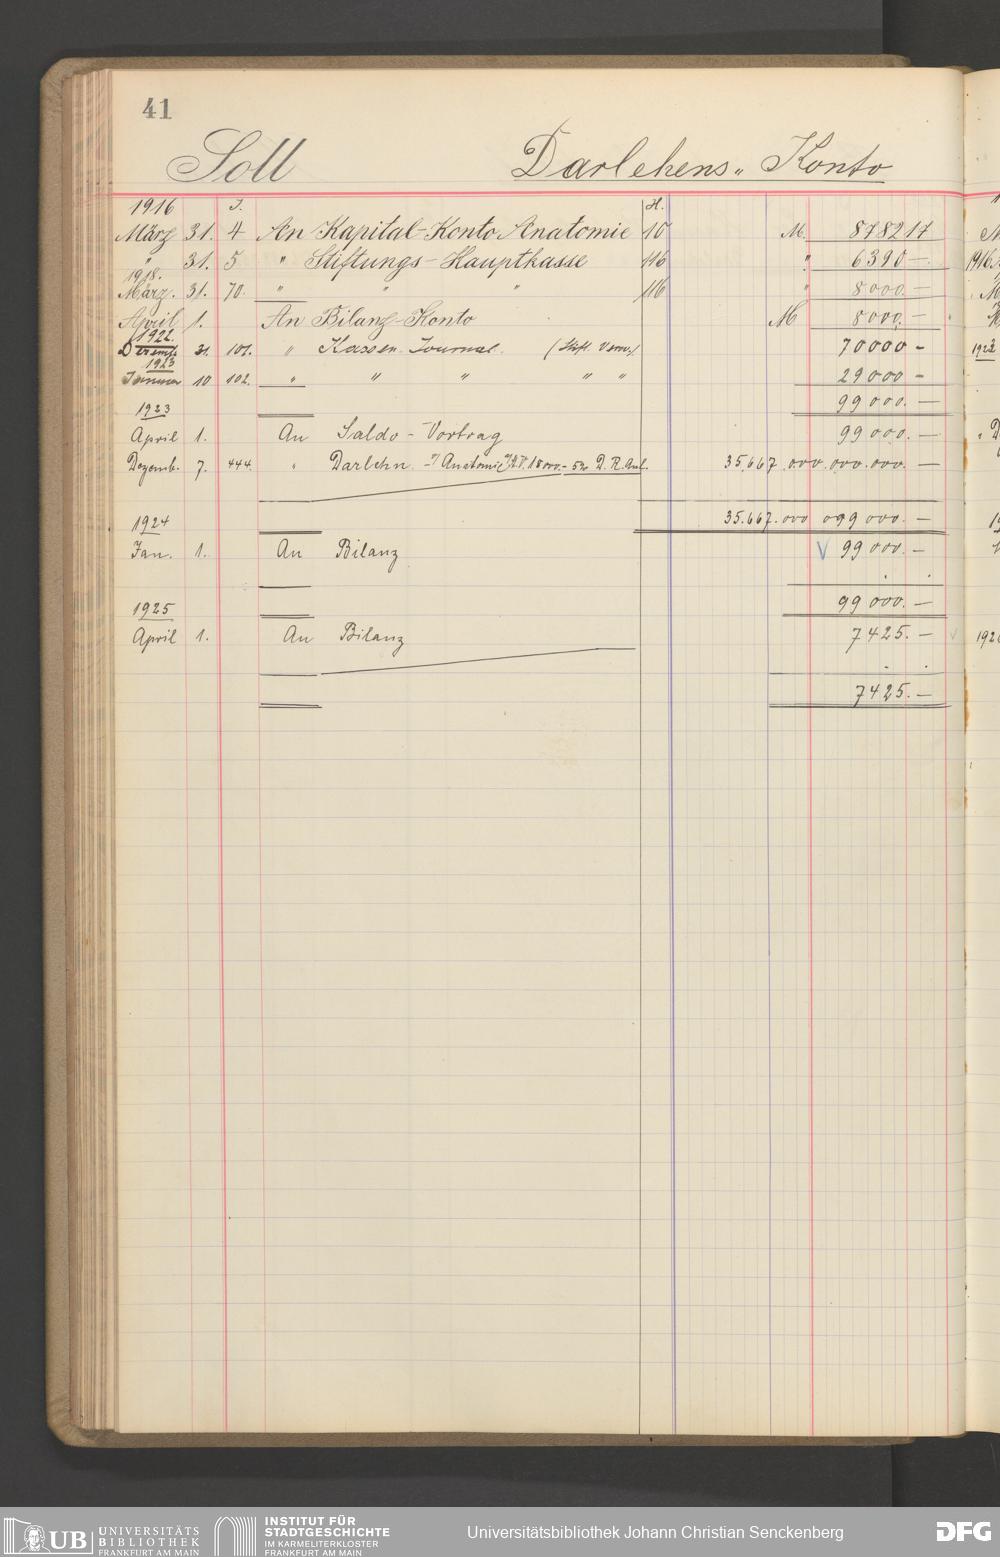 41
Soll Darlehens- Konto
1916 J. H.
März 31. 4 An Kapital-Konto Anatomie 10 M. 8782 17
" 31. 5 " Stiftungs-Hauptkasse 116 " 6390 —.
1918.
März. 31. 70. " " " 116 " 8000. —
April 1. An Bilanz-Konto M 8000. —
1922.
Dezemb. 31. 101. " Kassen Journal. (Stift. Verw.) 70000 —
1923
Januar 10 102. " " " " " 29000 —
99000. —
1923
April 1. An Saldo-Vortrag 99000. —
Dezemb. 7. 444. " Darlehn. 35.667.000.000.000. —
35.667.000 099000. —
1924
Jan. 1. An Bilanz 99000. —
99000. —
1925
April 1. An Bilanz 7425. —
7425. —
UB UNIVERSITÄTS
BIBLIOTHEK
FRANKFURT AM MAIN
INSTITUT FÜR
STADTGESCHICHTE
IM KARMELITERKLOSTER
FRANKFURT AM MAIN
Universitätsbibliothek Johann Christian Senckenberg
DFG